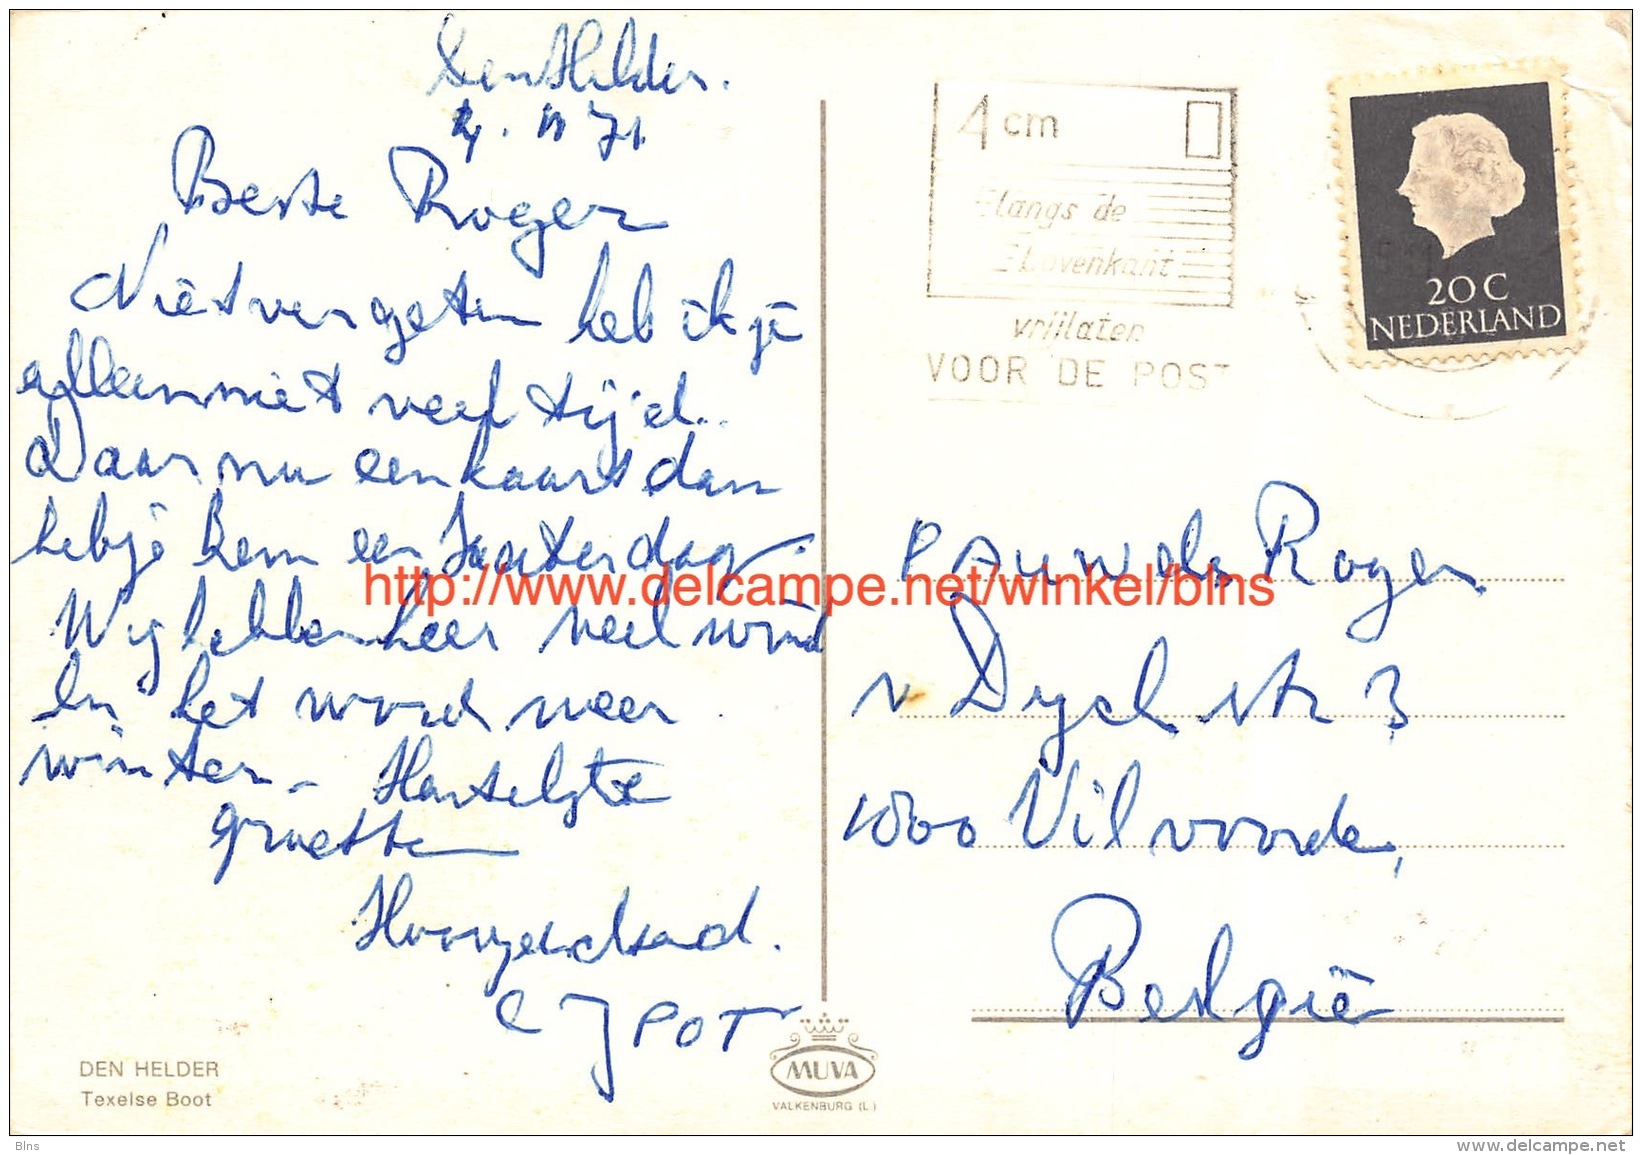 Den Helder.
71.
Beste Roger
Niet vergeten heb ik je
alleen niet veel tijd..
Daar nu een kaart dan
heb je hem een zaaterdag.
Wij hebben heer veel wind
En het word weer
winter - Hartelijke
groetten
Hoogachtend.
C J POT
DEN HELDER
Texelse Boot
MUVA
VALKENBURG (L.)
4 cm
langs de
bovenkant
vrijlaten
VOOR DE POST
20 C
NEDERLAND
PAUWels Roger
v Dyck str 3
1800 Vilvoorde,
België
http://www.delcampe.net/winkel/blns
Blns
http://www.delcampe.net